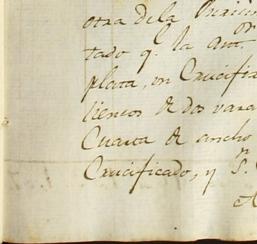 otra de la
tado q. la ant.
plata, un Crucifi
lienzos de dos vara
Cuarta de ancho
Crucificado, y S.